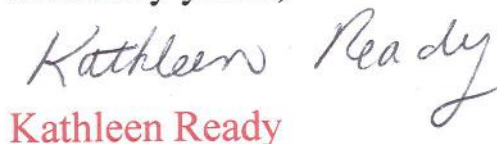 Kathleen Ready
Kathleen Ready